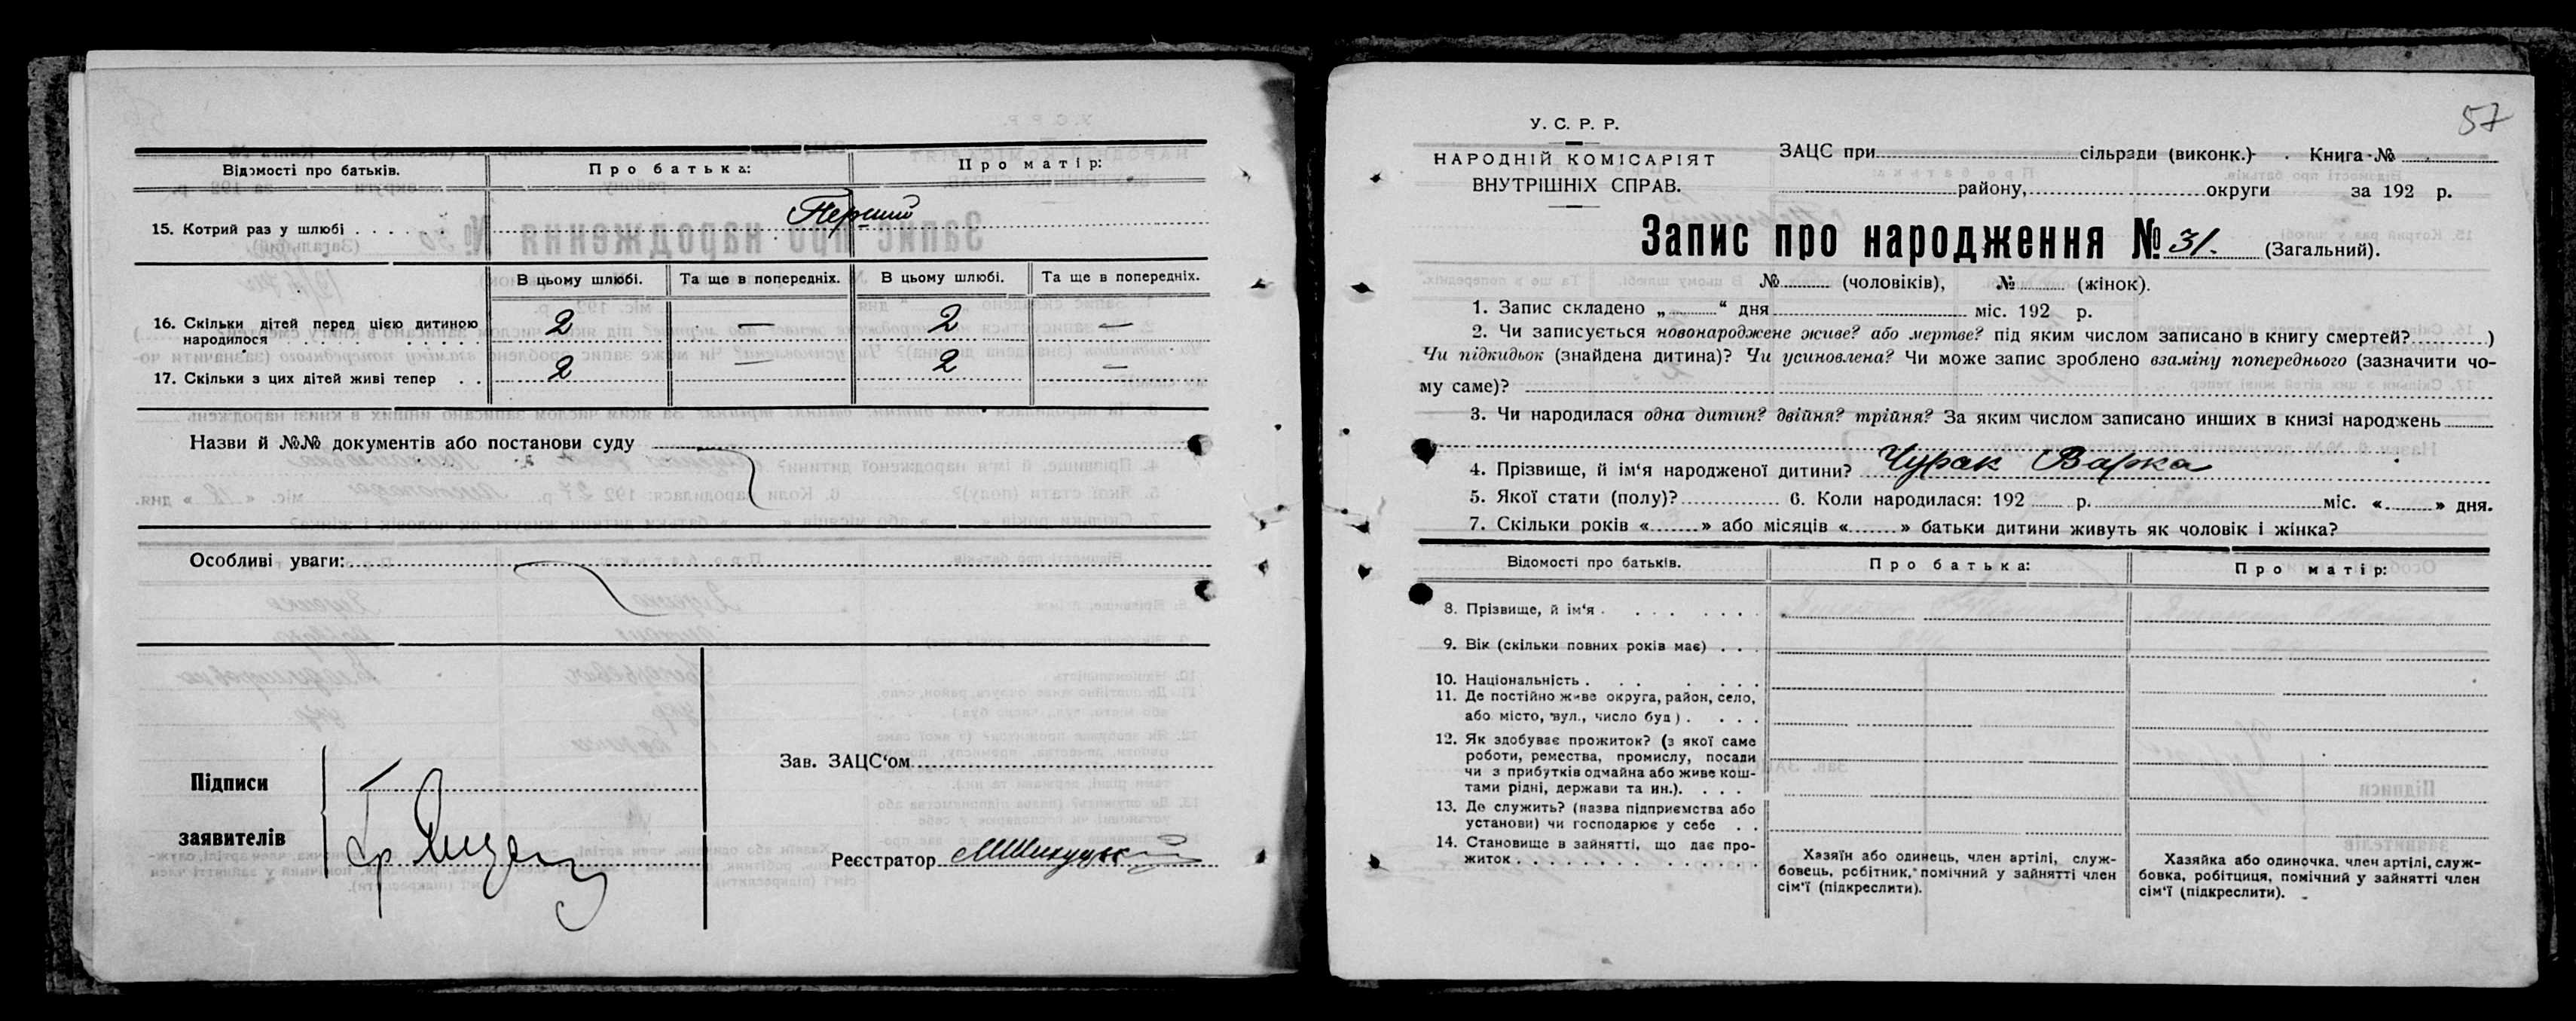 Відомості про батьків. Про батька: Про матір:
15. Котрий раз у шлюбі . . . . . . Перший
В цьому шлюбі. Та ще в попередніх. В цьому шлюбі. Та ще в попередніх.
16. Скільки дітей перед цією дитиною
народилося . . . . . . . . . 2 — 2 —
17. Скільки з цих дітей живі тепер . . 2 — 2 —
Назви й №№ документів або постанови суду
Особливі уваги:
Підписи
заявителів
Зав. ЗАЦС‘ом
Реєстратор
57
У. С. Р. Р.
НАРОДНІЙ КОМІСАРІЯТ
ВНУТРІШНІХ СПРАВ.
ЗАЦС при сільради (виконк.) Книга №
району, округи за 192 р.
Запис про народження № 31. (Загальний).
№ (чоловіків), № (жінок).
1. Запис складено „ “ дня міс. 192 р.
2. Чи записується новонароджене живе? або мертве? під яким числом записано в книгу смертей? )
Чи підкидьок (знайдена дитина)? Чи усиновлена? Чи може запис зроблено взаміну попереднього (зазначити чо-
му саме)?
3. Чи народилася одна дитин? двійня? трійня? За яким числом записано инших в книзі народжень
4. Прізвище, й ім‘я народженої дитини? Чурак Варка
5. Якої стати (полу)? 6. Коли народилася: 192 р. міс. « » дня.
7. Скільки років « » або місяців « » батьки дитини живуть як чоловік і жінка?
Відомості про батьків. Про батька: Про матір:
8. Прізвище, й ім‘я . . . . . . .
9. Вік (скільки повних років має) . . .
10. Національність . . . . . .
11. Де постійно живе округа, район, село,
або місто, вул., число буд) . . . .
12. Як здобуває прожиток? (з якої саме
роботи, ремества, промислу, посади
чи з прибутків одмайна або живе кош-
тами рідні, держави та ин.). . . .
13. Де служить? (назва підприємства або
установи) чи господарює у себе . .
14. Становище в зайнятті, що дає про-
житок . . . . . . . . . . . . .
Хазяїн або одинець, член артілі, служ-
бовець, робітник, помічний у зайнятті член
сім‘ї (підкреслити).
Хазяйка або одиночка, член артілі, служ-
бовка, робітциця, помічний у зайнятті член
сім‘ї (підкреслити).